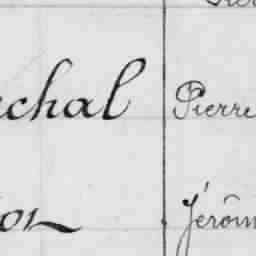 echal Pierre
on Jérôm